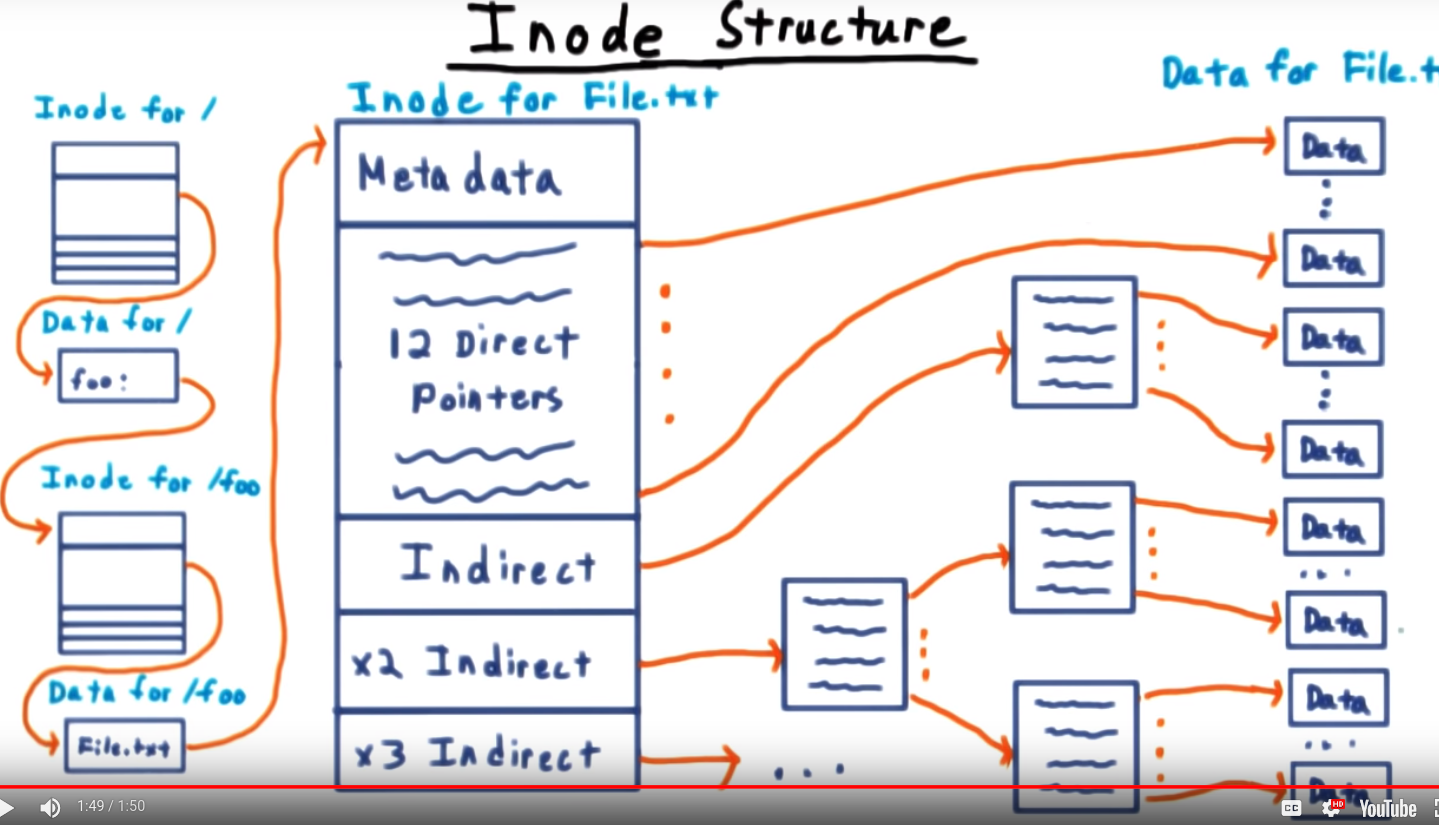 Inode Structure
Inode for /
Data for /
foo:
Inode for /foo
Data for /foo
File.txt
Inode for File.txt
Meta data
12 Direct
Pointers
Indirect
x2 Indirect
x3 Indirect
Data for File.t
Data
Data
Data
Data
Data
Data
Data
Data
1:49 / 1:50
CC
HD
YouTube